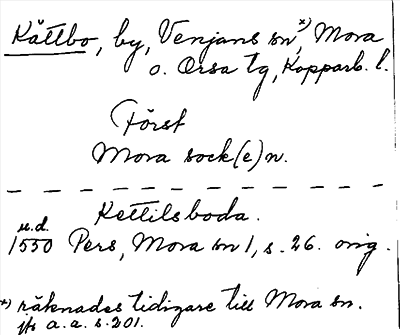 Kättbo, by, Venjans sn,*) Mora
o. Orsa tg, Kopparb. l.
Först
Mora sock(e)n.
Kettilsboda.
u.d.
1550 Pers, Mora sn 1, s. 26. orig.
*) räknades tidigare till Mora sn.
jfr a.a. s. 201.